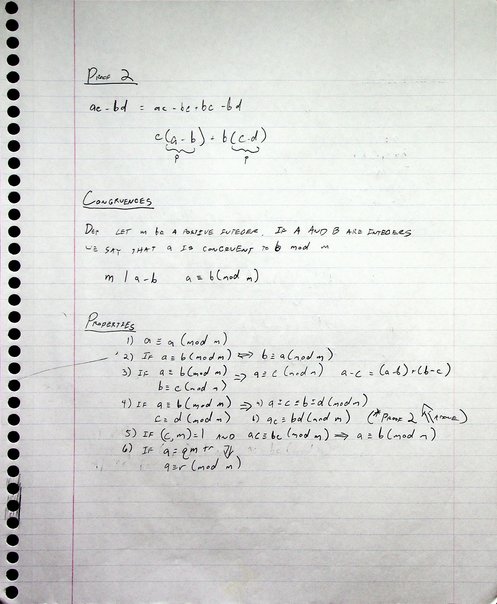 PROOF 2
ac - bd = ac - bc + bc - bd
c(a - b) + b(c - d)
P P
CONGRUENCES
DEF LET m be A POSITIVE INTEGER. IF A AND B ARE INTEGERS
WE SAY THAT a IS CONGRUENT TO b mod m
m | a - b a ≡ b (mod m)
PROPERTIES
1) a ≡ a (mod m)
2) IF a ≡ b (mod m) ⟺ b ≡ a (mod m)
3) IF a ≡ b (mod m) ⇒ a ≡ c (mod m) a - c = (a - b) + (b - c)
b ≡ c (mod m)
4) IF a ≡ b (mod m) ⇒ a) a ± c ≡ b ± d (mod m)
c ≡ d (mod m) b) ac ≡ bd (mod m) (* PROOF 2 ABOVE)
5) IF (c, m) = 1 AND ac ≡ bc (mod m) ⇒ a ≡ b (mod m)
6) IF a = qm + r ⇓
a ≡ r (mod m)